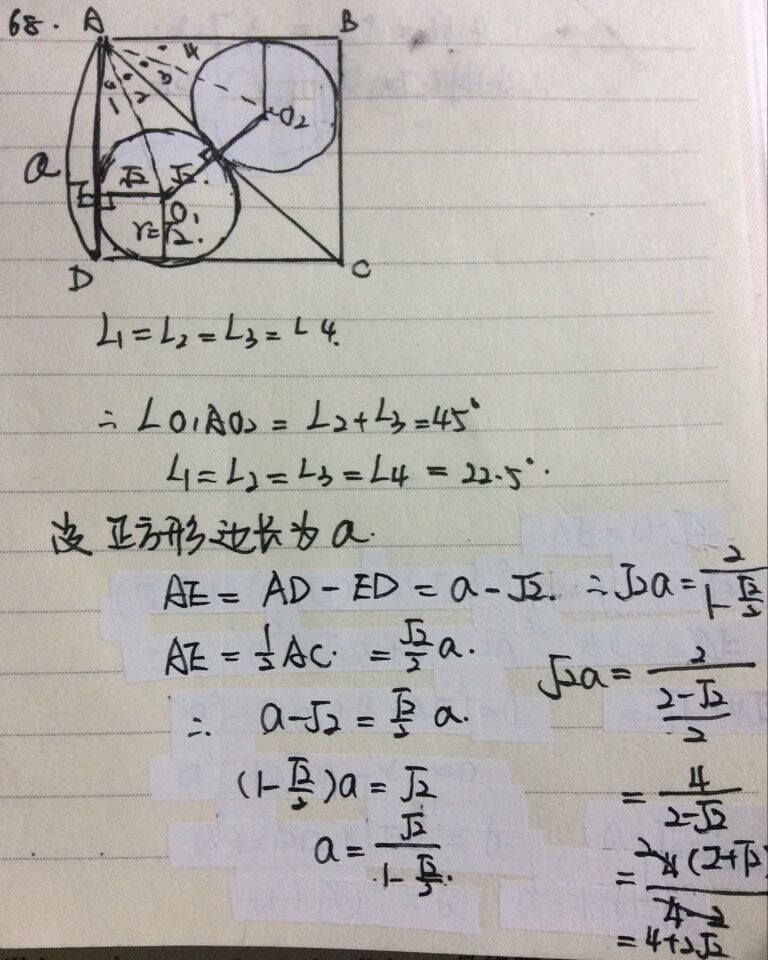 68. A B
4
3
1 2
O₂
a √2 √2.
E O₁
r=√2.
D C
∠1=∠2=∠3=∠4.
∴ ∠O₁AO₂ = ∠2+∠3=45°
∠1=∠2=∠3=∠4 = 22.5°.
设正方形边长为a.
AE = AD - ED = a-√2. ∴ √2a = 2/(1-√2/2)
AE = ½AC. = √2/2 a. √2a = 2/((2-√2)/2)
∴ a-√2 = √2/2 a.
(1-√2/2)a = √2 = 4/(2-√2)
a = √2/(1-√2/2). = 2 4(2+√2)/(4-2)
= 4+2√2